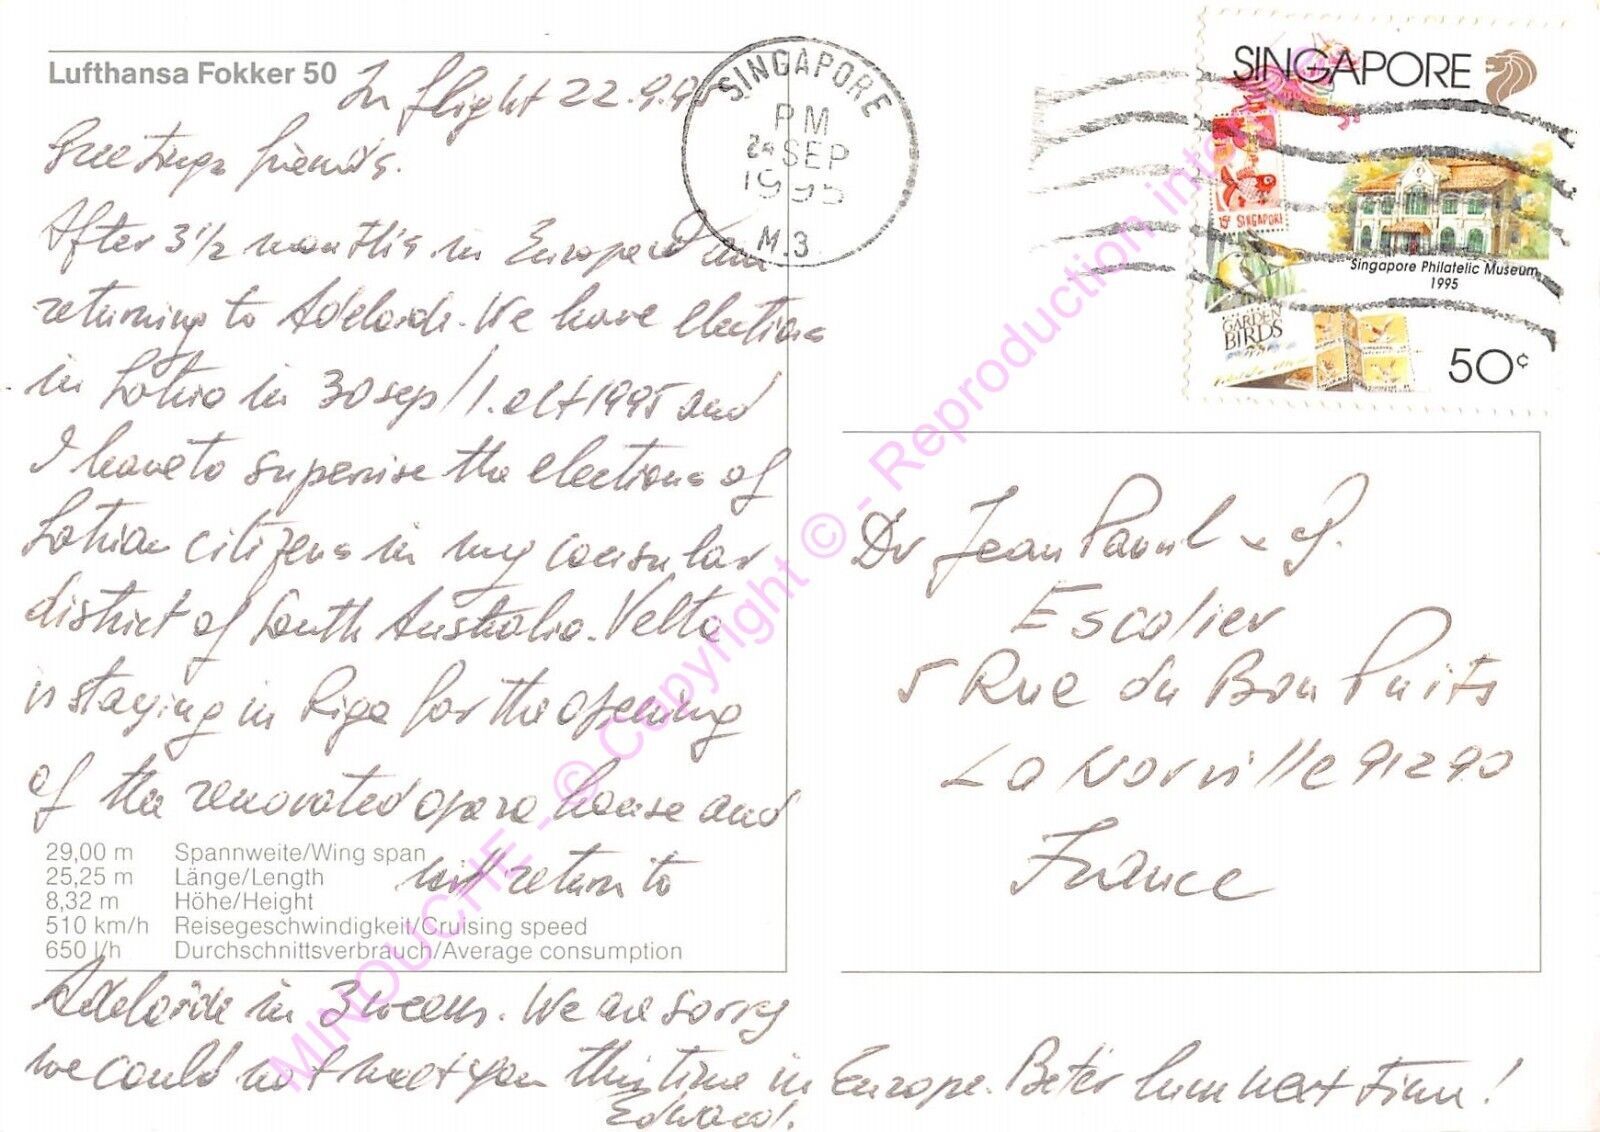 Lufthansa Fokker 50
In flight 22.9.95
Greetings friends.
After 3 1/2 months in Europe I am
returning to Adelaide. We have elections
in Latvia in 30 sep/1. oct 1995 and
I have to supervise the elections of
Latvian citizens in my consular
district of South Australia. Velta
is staying in Riga for the opening
of the renovated opera house and
will return to
29,00 m Spannweite/Wing span
25,25 m Länge/Length
8,32 m Höhe/Height
510 km/h Reisegeschwindigkeit/Cruising speed
650 l/h Durchschnittsverbrauch/Average consumption
Adelaide in 3 weeks. We are sorry
we could not meet you this time in Europe. Beter lum next time!
Edward.
SINGAPORE
PM
24 SEP
1995
M.3
SINGAPORE
15c SINGAPORE
Singapore Philatelic Museum
1995
GARDEN
BIRDS
50¢
Dr Jean Paul & P.
Escolier
5 Rue du Bon Puits
La Norville 91290
France
MINOUCHE - © Copyright © - Reproduction inter